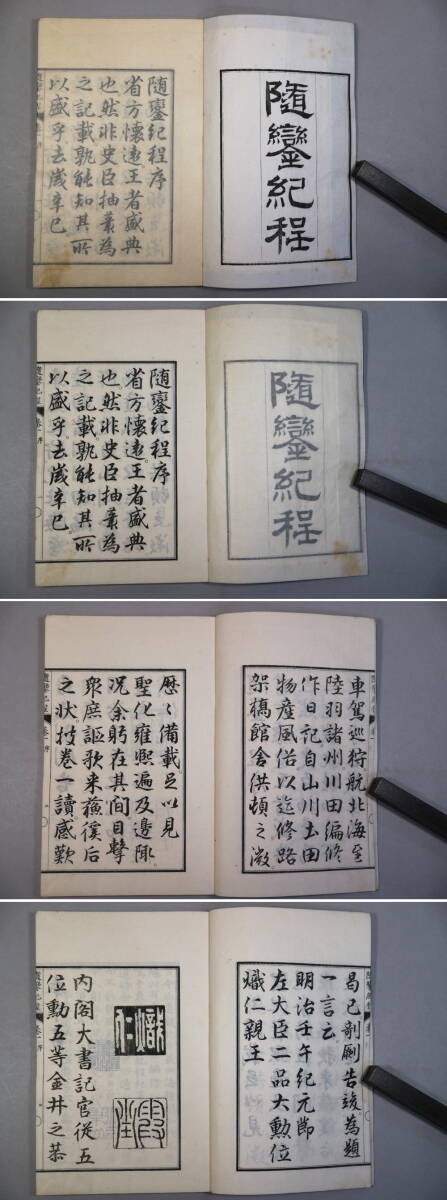 随鑾紀程
随鑾紀程序
省方懐遠王者盛典
也然非史臣抽叢為
之記載孰能知其所
以盛乎去歳辛巳
随鑾紀程
随鑾紀程序
省方懐遠王者盛典
也然非史臣抽叢為
之記載孰能知其所
以盛乎去歳辛巳
車駕巡狩航北海至
陸羽諸州川田編修
作日記自山川土田
物産風俗以迄修路
架橋館舎供頓之微
歴〻備載足以見
聖化雍熙遍及邊陬
況余躬在其間目撃
衆庶謳歌来蘇徯后
之状披巻一讀感歎
曷已剞劂告竣為題
一言云
明治壬午紀元節
左大臣二品大勲位
熾仁親王
熾仁
内閣大書記官従五
位勲五等金井之恭